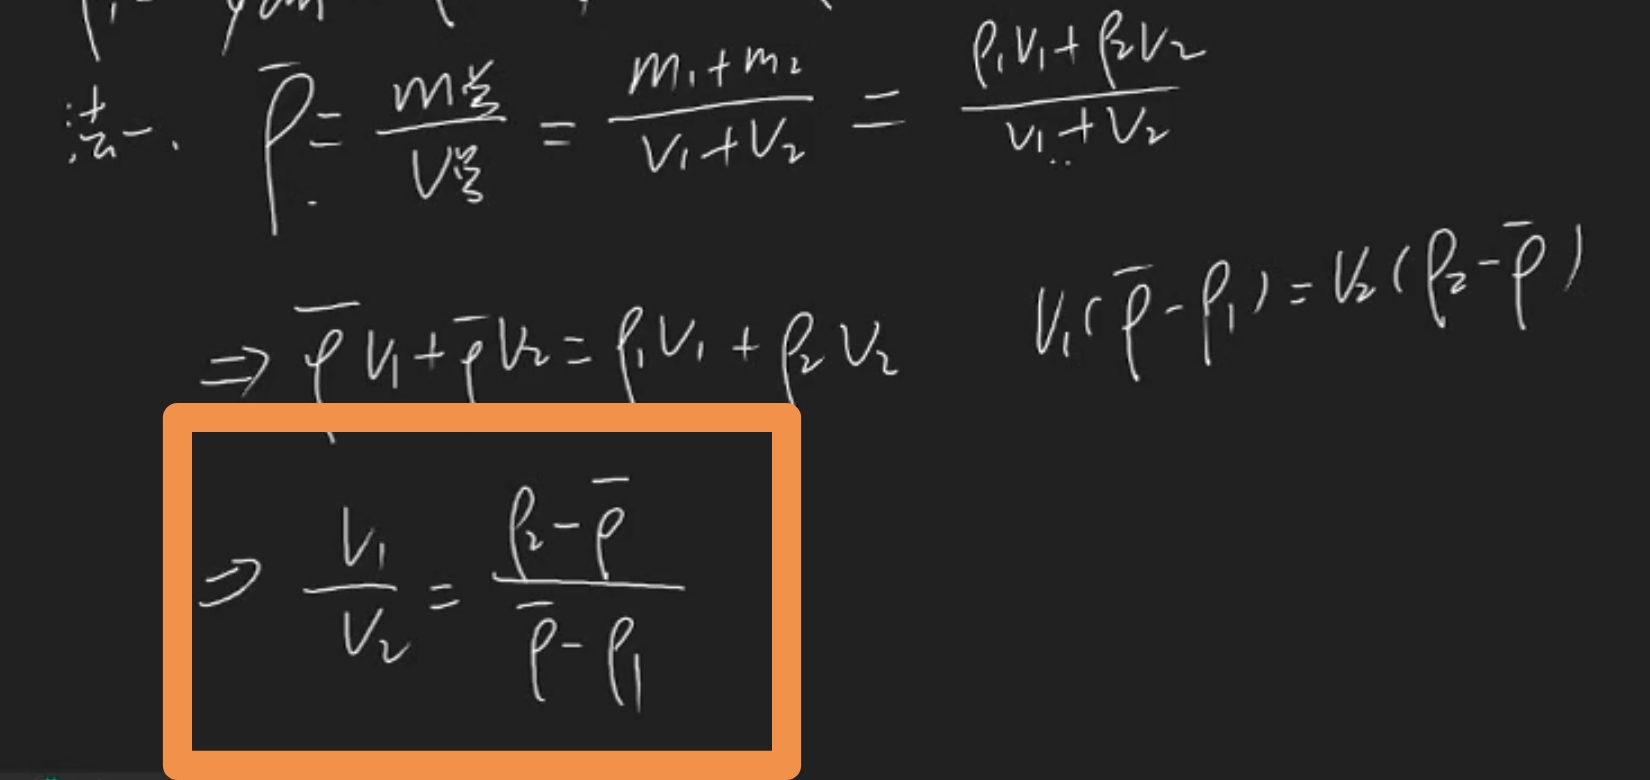 法一. ρ̄ = m总/V总 = (m₁+m₂)/(V₁+V₂) = (ρ₁V₁+ρ₂V₂)/(V₁+V₂)
⇒ ρ̄V₁+ρ̄V₂=ρ₁V₁+ρ₂V₂
V₁(ρ̄-ρ₁)=V₂(ρ₂-ρ̄)
⇒ V₁/V₂ = (ρ₂-ρ̄)/(ρ̄-ρ₁)